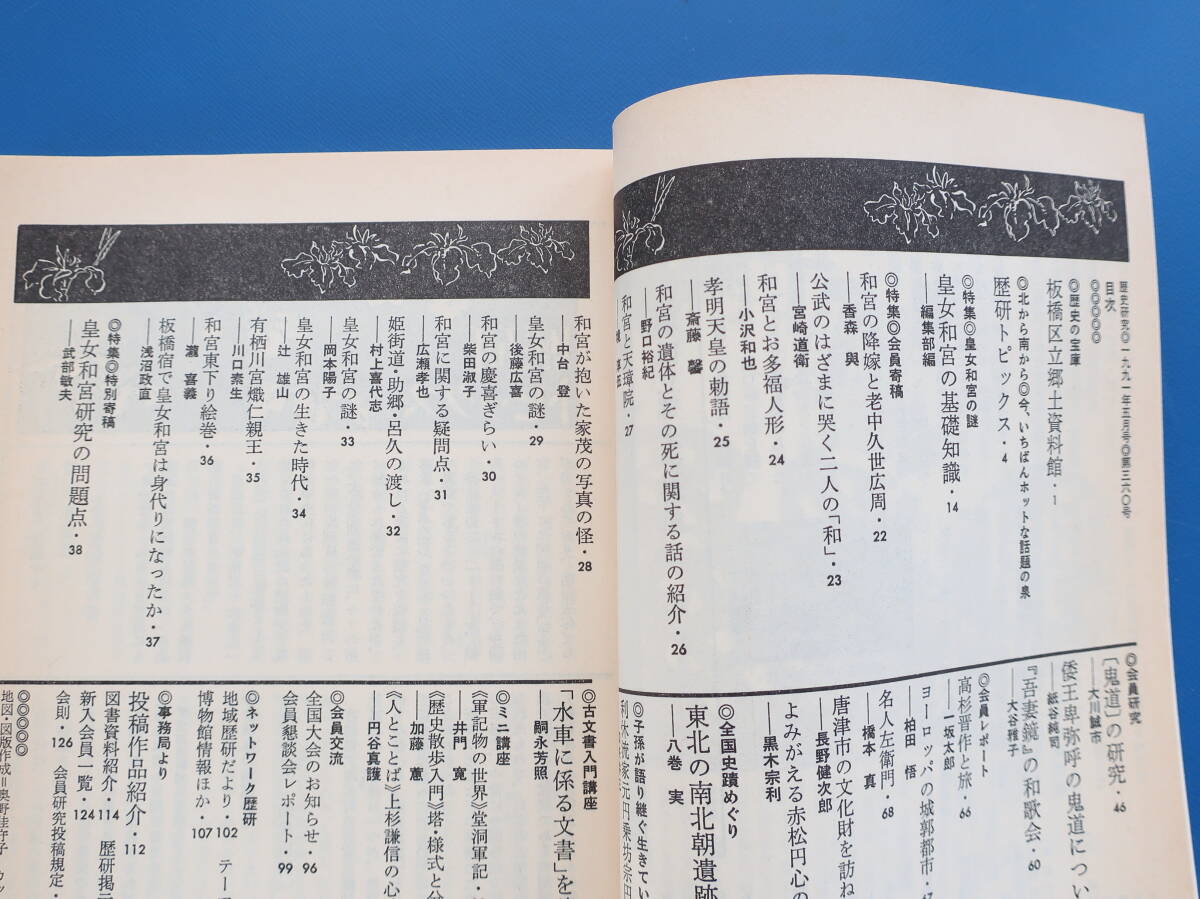 歴史研究◎一九九一年五月号◎第三六〇号
目次
◎◎◎◎◎
◎歴史の宝庫
板橋区立郷土資料館・1
◎北から南から◎今、いちばんホットな話題の泉
歴研トピックス・4
◎特集◎皇女和宮の謎
皇女和宮の基礎知識・14
──編集部編
◎特集◎会員寄稿
和宮の降嫁と老中久世広周・22
──香森 與
公武のはざまに哭く二人の「和」・23
──宮崎道衛
和宮とお多福人形・24
──小沢和也
孝明天皇の勅語・25
──斎藤 馨
和宮の遺体とその死に関する話の紹介・26
──野口裕紀
和宮と天璋院・27
和宮が抱いた家茂の写真の怪・28
──中台 登
皇女和宮の謎・29
──後藤広喜
和宮の慶喜ぎらい・30
──柴田淑子
和宮に関する疑問点・31
──広瀬孝也
姫街道・助郷・呂久の渡し・32
──村上喜代志
皇女和宮の謎・33
──岡本陽子
皇女和宮の生きた時代・34
──辻 雄山
有栖川宮熾仁親王・35
──川口素生
和宮東下り絵巻・36
──瀧 喜義
板橋宿で皇女和宮は身代りになったか・37
──浅沼政直
◎特集◎特別寄稿
皇女和宮研究の問題点・38
──武部敏夫
◎会員研究
〔鬼道〕の研究・46
──大川誠市
倭王卑弥呼の鬼道につい
──紙谷純司
『吾妻鏡』の和歌会・60
──大谷雅子
◎会員レポート
高杉晋作と旅・66
──一坂太郎
ヨーロッパの城郭都市・67
──柏田 悟
名人左衛門・68
──橋本 真
唐津市の文化財を訪ね
──長野健次郎
よみがえる赤松円心の
──黒木宗利
◎全国史蹟めぐり
東北の南北朝遺跡
──八巻 実
◎子孫が語り継ぐ生きてい
◎古文書入門講座
「水車に係る文書」を
──嗣永芳照
◎ミニ講座
《軍記物の世界》堂洞軍記・
──井門 寛
《歴史散歩入門》塔・様式と
──加藤 蕙
《人とことば》上杉謙信の心
──円谷真護
◎会員交流
全国大会のお知らせ・96
会員懇談会レポート・99
◎ネットワーク歴研
地域歴研だより・102 テー
博物館情報ほか・107
◎事務局より
投稿作品紹介・112
図書資料紹介・114 歴研掲示
新入会員一覧・124
会則・126 会員研究投稿規定・
◎◎◎◎◎
地図・図版作成＝奥野佳守子 カッ